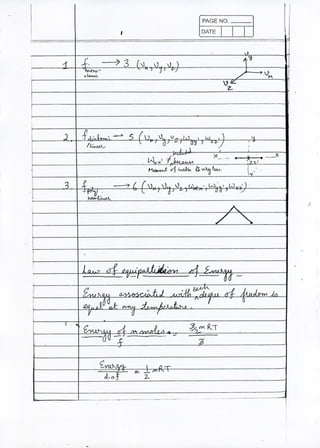 PAGE NO.
DATE
1 f mono-atomic → 3 (Vx, Vy, Vz)
Vy
Vx
Vz
2. f diatomic /linear → 5 (Vx, Vy, Vz, ωyy', ωzz')
ωxx' because
Moment of
X
y
zz'
3. f poly non-linear → 6 (Vx, Vy, Vz, ωxx', ωyy', ωzz')
Law of equipartition of Energy
Energy associated with each degree of freedom is
equal at any temperature.
Energy of n moles = 3/2 nRT
f 3
Energy = 1 nRT
d.o.f 2